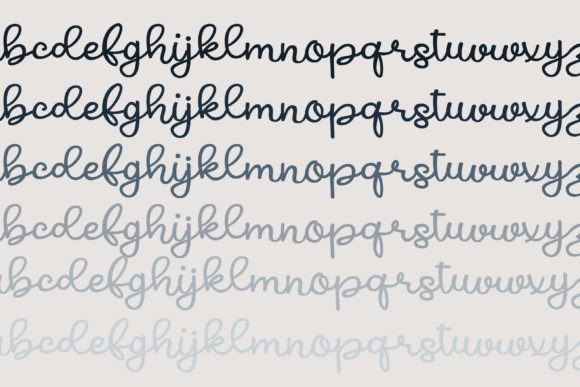 abcdefghijklmnopqrstuvwxyz
abcdefghijklmnopqrstuvwxyz
abcdefghijklmnopqrstuvwxyz
abcdefghijklmnopqrstuvwxyz
abcdefghijklmnopqrstuvwxyz
abcdefghijklmnopqrstuvwxyz